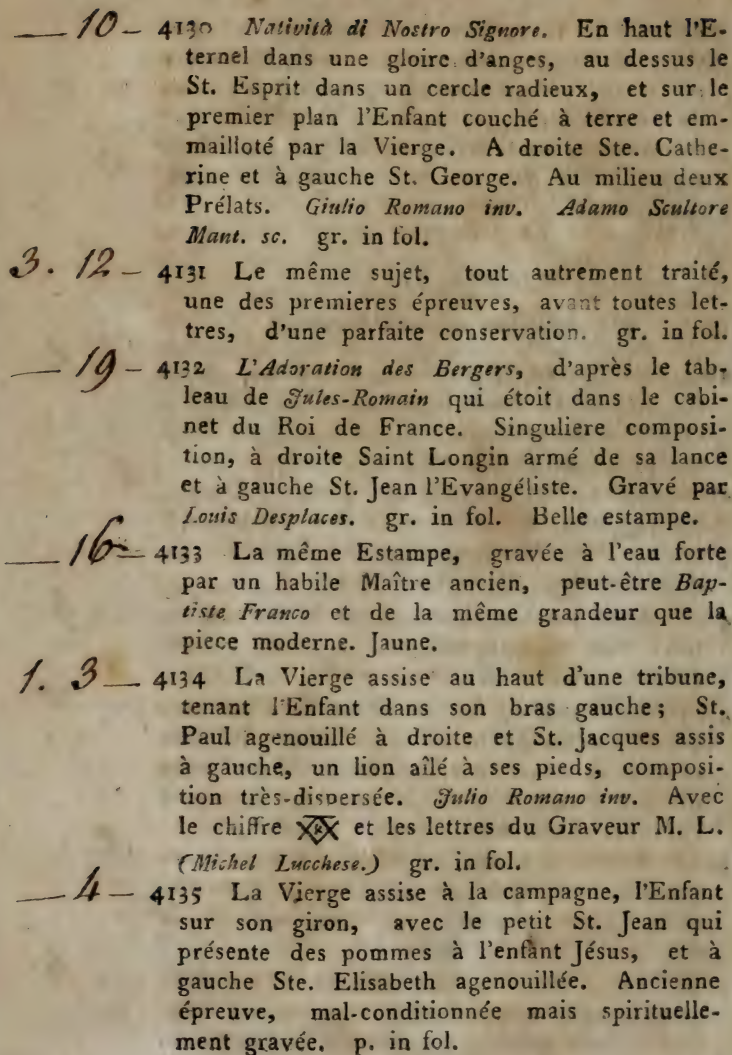 — 10 — 4130 Natività di Nostro Signore. En haut l'E-
ternel dans une gloire d'anges, au dessus le
St. Esprit dans un cercle radieux, et sur le
premier plan l'Enfant couché à terre et em-
mailloté par la Vierge. A droite Ste. Cathe-
rine et à gauche St. George. Au milieu deux
Prélats. Giulio Romano inv. Adamo Scultore
Mant. sc. gr. in fol.
3. 12 — 4131 Le même sujet, tout autrement traité,
une des premieres épreuves, avant toutes let-
tres, d'une parfaite conservation. gr. in fol.
— 19 — 4132 L'Adoration des Bergers, d'après le tab-
leau de Jules-Romain qui étoit dans le cabi-
net du Roi de France. Singuliere composi-
tion, à droite Saint Longin armé de sa lance
et à gauche St. Jean l'Evangéliste. Gravé par
Louis Desplaces. gr. in fol. Belle estampe.
— 16 — 4133 La même Estampe, gravée à l'eau forte
par un habile Maître ancien, peut-être Bap-
tiste Franco et de la même grandeur que la
piece moderne. Jaune.
1. 3 — 4134 La Vierge assise au haut d'une tribune,
tenant l'Enfant dans son bras gauche; St.
Paul agenouillé à droite et St. Jacques assis
à gauche, un lion aîlé à ses pieds, composi-
tion très-dispersée. Julio Romano inv. Avec
le chiffre et les lettres du Graveur M. L.
(Michel Lucchese.) gr. in fol.
— 4 — 4135 La Vierge assise à la campagne, l'Enfant
sur son giron, avec le petit St. Jean qui
présente des pommes à l'enfant Jésus, et à
gauche Ste. Elisabeth agenouillée. Ancienne
épreuve, mal-conditionnée mais spirituelle-
ment gravée. p. in fol.